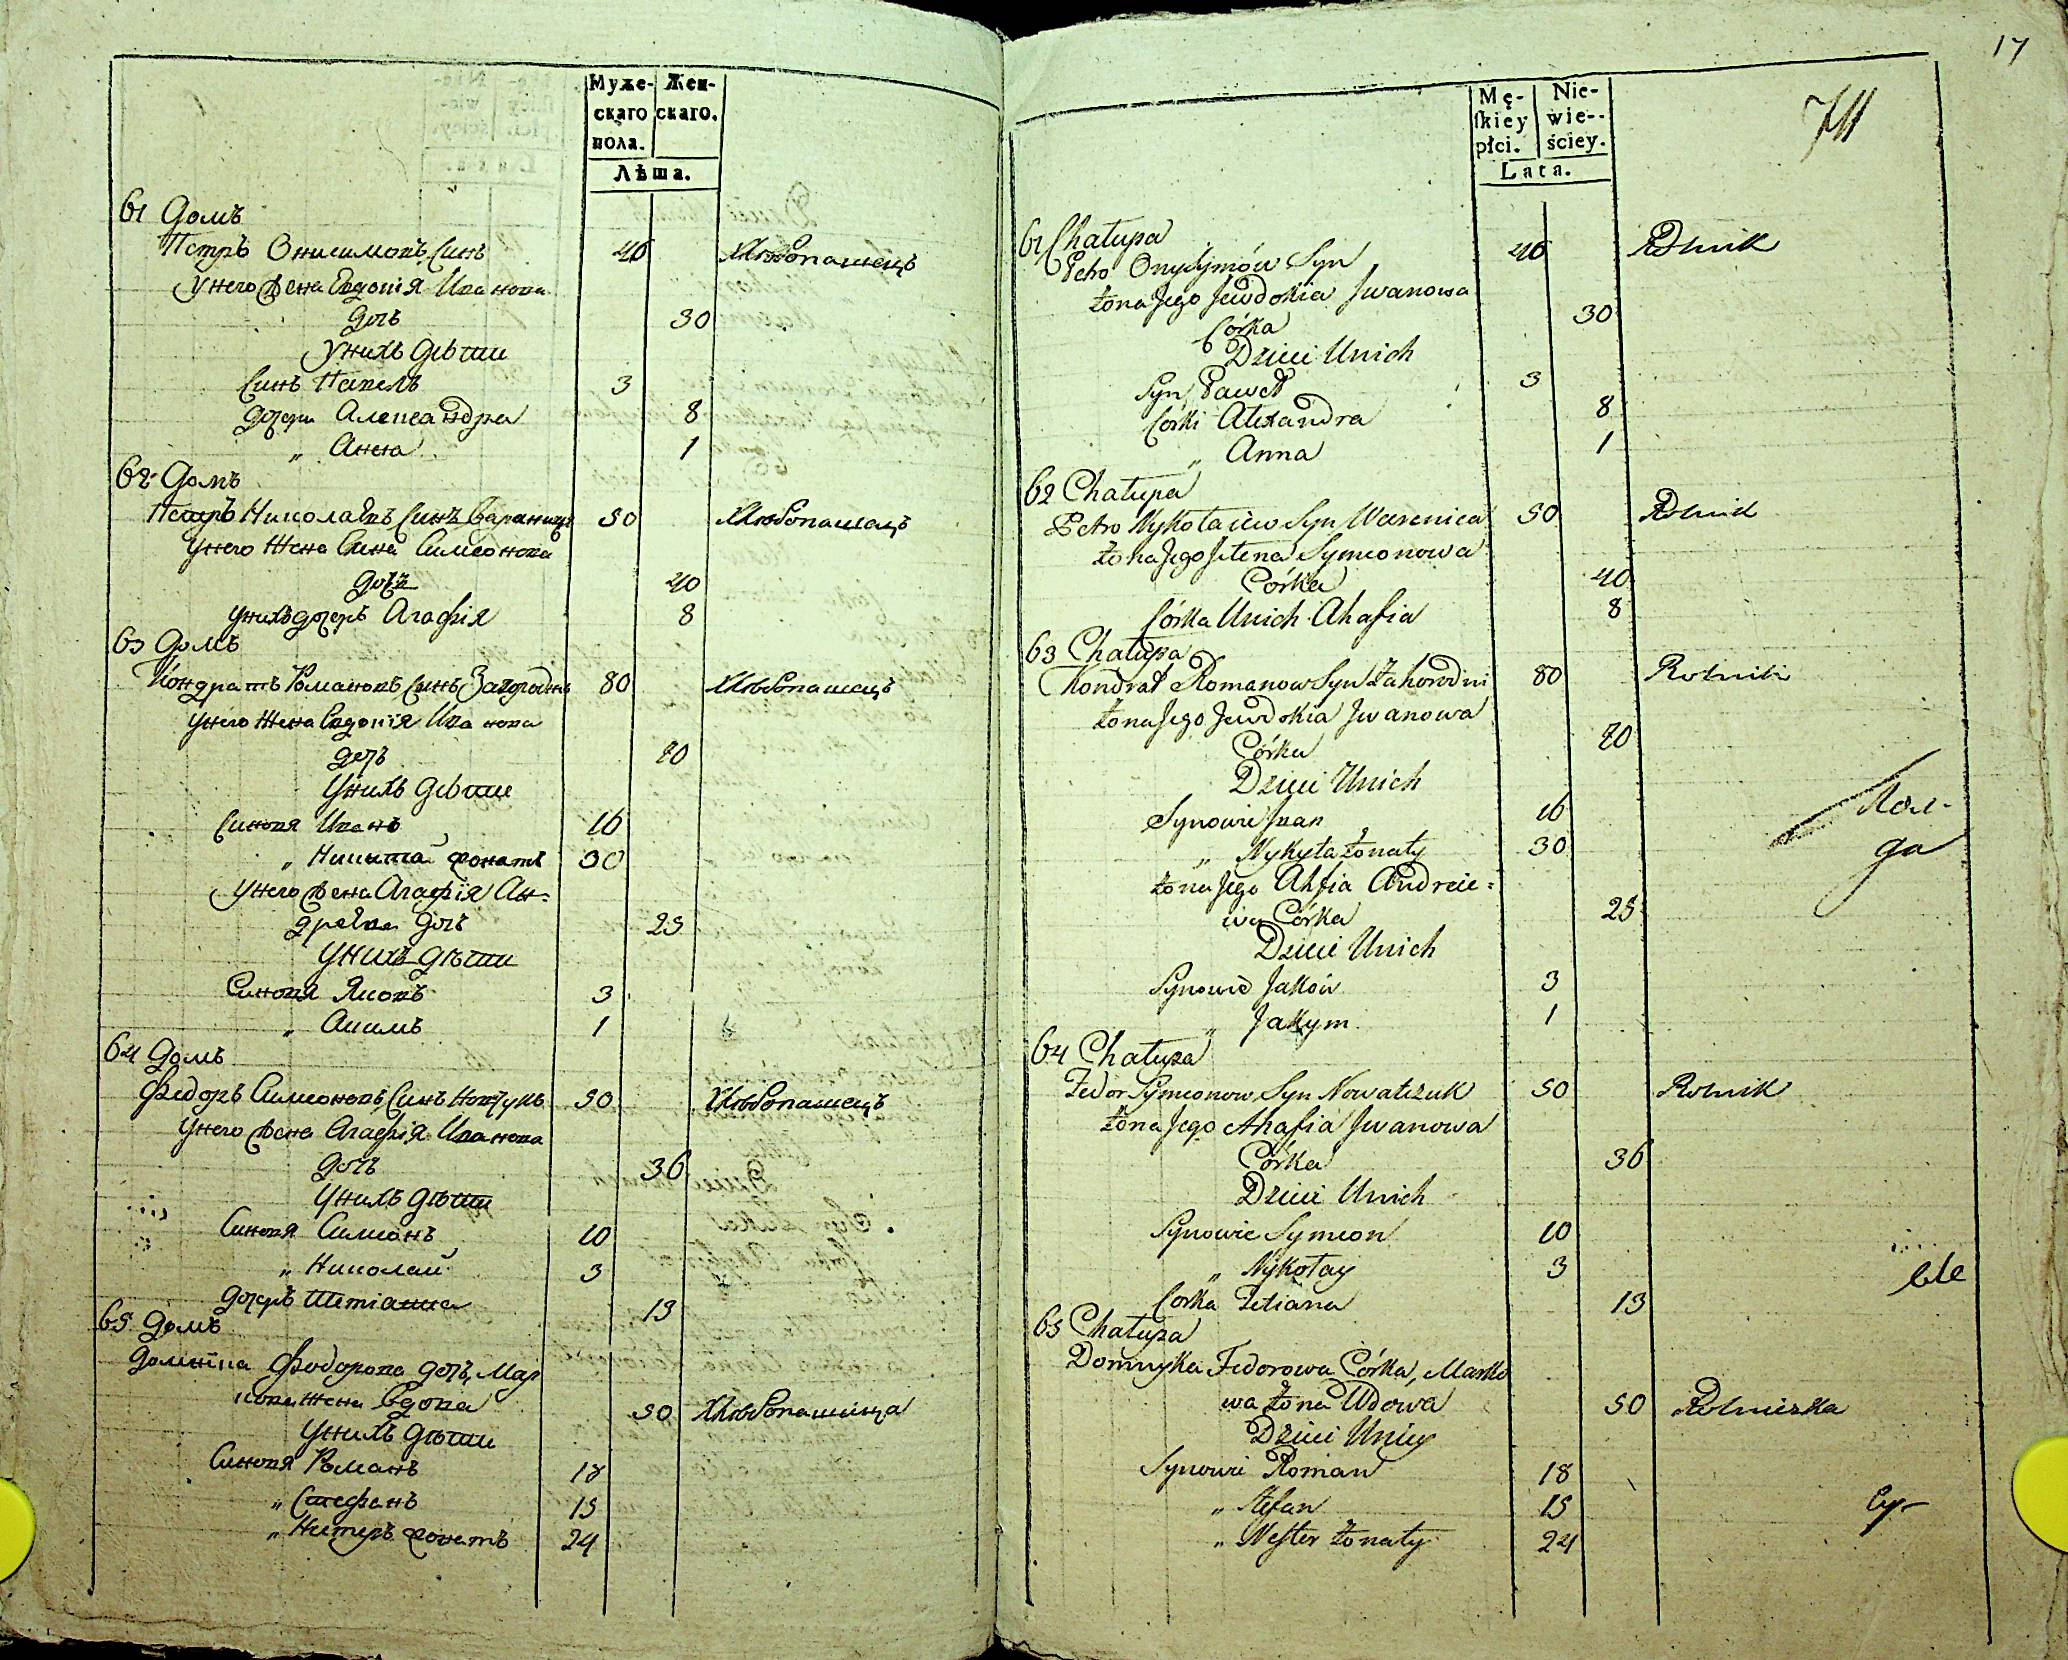 Муже-
скаго
пола.
Жен-
скаго.
Лѣта.
61 Домъ
Петръ Онисимовъ Синъ 46 Хлѣбопашецъ
У него жена Евдокія Иванова
дочь 30
У нихъ дѣти
Синъ Павелъ 3
дочери Александра 8
„ Анна 1
62 Домъ
Петръ Николаевъ Синъ Вараница 50 Хлѣбопашецъ
У него жена Елена Симеонова
дочь 40
У нихъ дочерь Агафія 8
63 Домъ
Кондратъ Романовъ Синъ Загородный 80 Хлѣбопашецъ
У него жена Евдокія Иванова
дочь 70
У нихъ дѣти
Синовя Иванъ 16
„ Никита жонатъ 30
У него жена Агафія Ан-
дреева дочь 25
У нихъ дѣти
Синовя Яковъ 3
„ Акимъ 1
64 Домъ
Федоръ Симеоновъ Синъ 50 Хлѣбопашецъ
У него жена Агафія Иванова
дочь 36
У нихъ дѣти
Синовя Симеонъ 10
„ Николай 3
дочерь Тетіанна 13
65 Домъ
Домникa Федорова дочь, Мар
кова жена Вдова 50 Хлѣбопашица
У нихъ дѣти
Синовя Романъ 18
„ Стефанъ 15
„ Нестеръ жонатъ 24
17
711
Mę-
ſkiey
płci.
Nie-
wie--
ściey.
Lata.
61 Chałupa
Petro Onysymów Syn 46 Rolnik
Żona Jego Jewdokia Jwanowa
Córka 30
Dzieci Unich
Syn Paweł 3
Córki Alexandra 8
„ Anna 1
62 Chałupa
Petro Nykołaiew Syn Warenica 50 Rolnik
Żona Jego Jełena Symeonowa
Córka 40
Córka Unich Ahafia 8
63 Chałupa
Kondrat Romanow Syn Zahorodni 80 Rolnik
Żona Jego Jewdokia Jwanowa
Córka 70
Dzieci Unich
Synowie Jwan 16
„ Nykyta Żonaty 30
Żona Jego Ahfia Andreie-
wa Córka 25
Dzieci Unich
Synowie Jaków 3
„ Jakym 1
64 Chałupa
Fedor Symeonow Syn Nowalczuk 50 Rolnik
Żona Jego Ahafia Jwanowa
Córka 36
Dzieci Unich
Synowie Symeon 10
„ Nykołay 3
Corka Tetiana 13
65 Chałupa
Domnyka Fedorowa Córka, Marko
wa Żona Wdowa 50 Rolniczka
Dzieci Unich
Synowie Roman 18
„ Stefan 15
„ Nester Żonaty 24